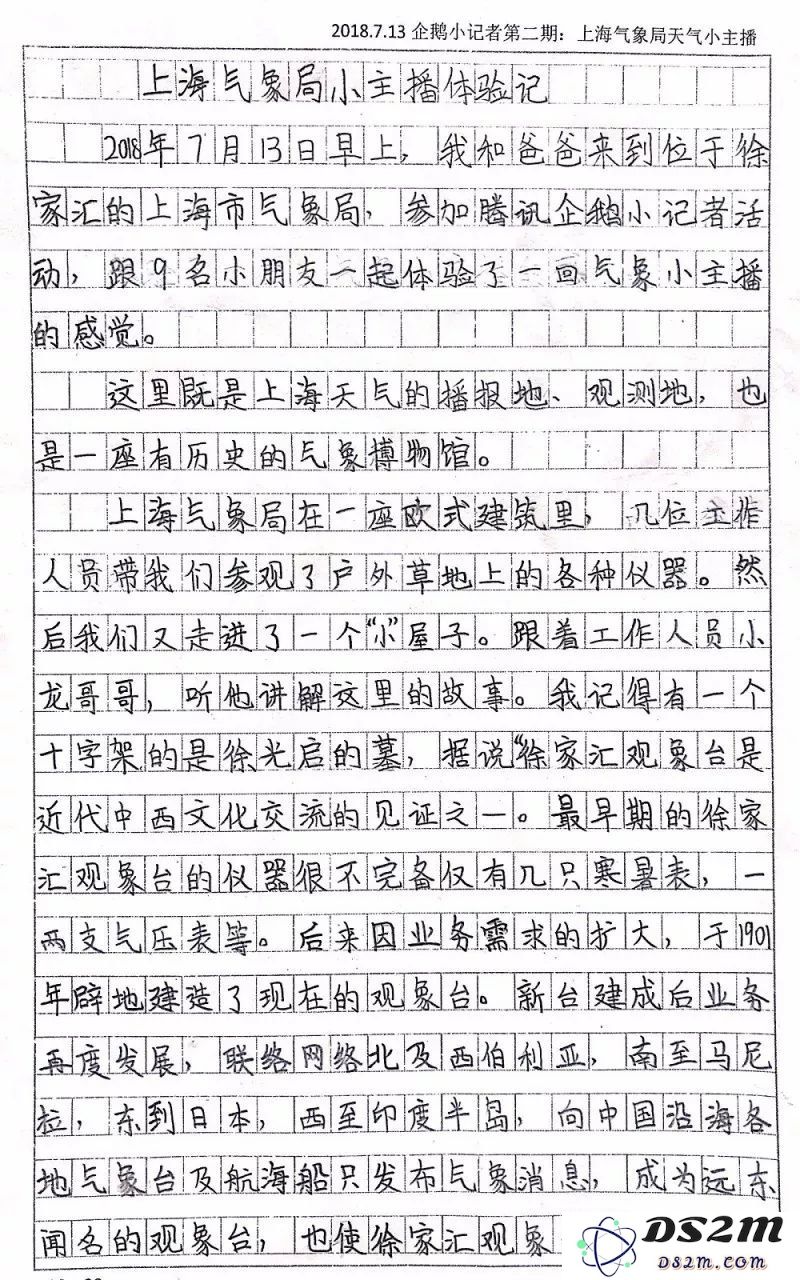 2018.7.13 企鹅小记者第二期：上海气象局天气小主播
上海气象局小主播体验记
2018年7月13日早上，我和爸爸来到位于徐
家汇的上海市气象局，参加腾讯企鹅小记者活
动，跟9名小朋友一起体验了一回气象小主播
的感觉。
这里既是上海天气的播报地、观测地，也
是一座有历史的气象博物馆。
上海气象局在一座欧式建筑里，几位工作
人员带我们参观了户外草地上的各种仪器。然
后我们又走进了一个“小”屋子。跟着工作人员小
龙哥哥，听他讲解这里的故事。我记得有一个
十字架的是徐光启的墓，据说“徐家汇观象台是
近代中西文化交流的见证之一。最早期的徐家
汇观象台的仪器很不完备仅有几只寒暑表，一
两支气压表等。后来因业务需求的扩大，于1901
年辟地建造了现在的观象台。新台建成后业务
再度发展，联络网络北及西伯利亚，南至马尼
拉，东到日本，西至印度半岛，向中国沿海各
地气象台及航海船只发布气象消息，成为远东
闻名的观象台，也使徐家汇观象
DS2M
DS2m.com